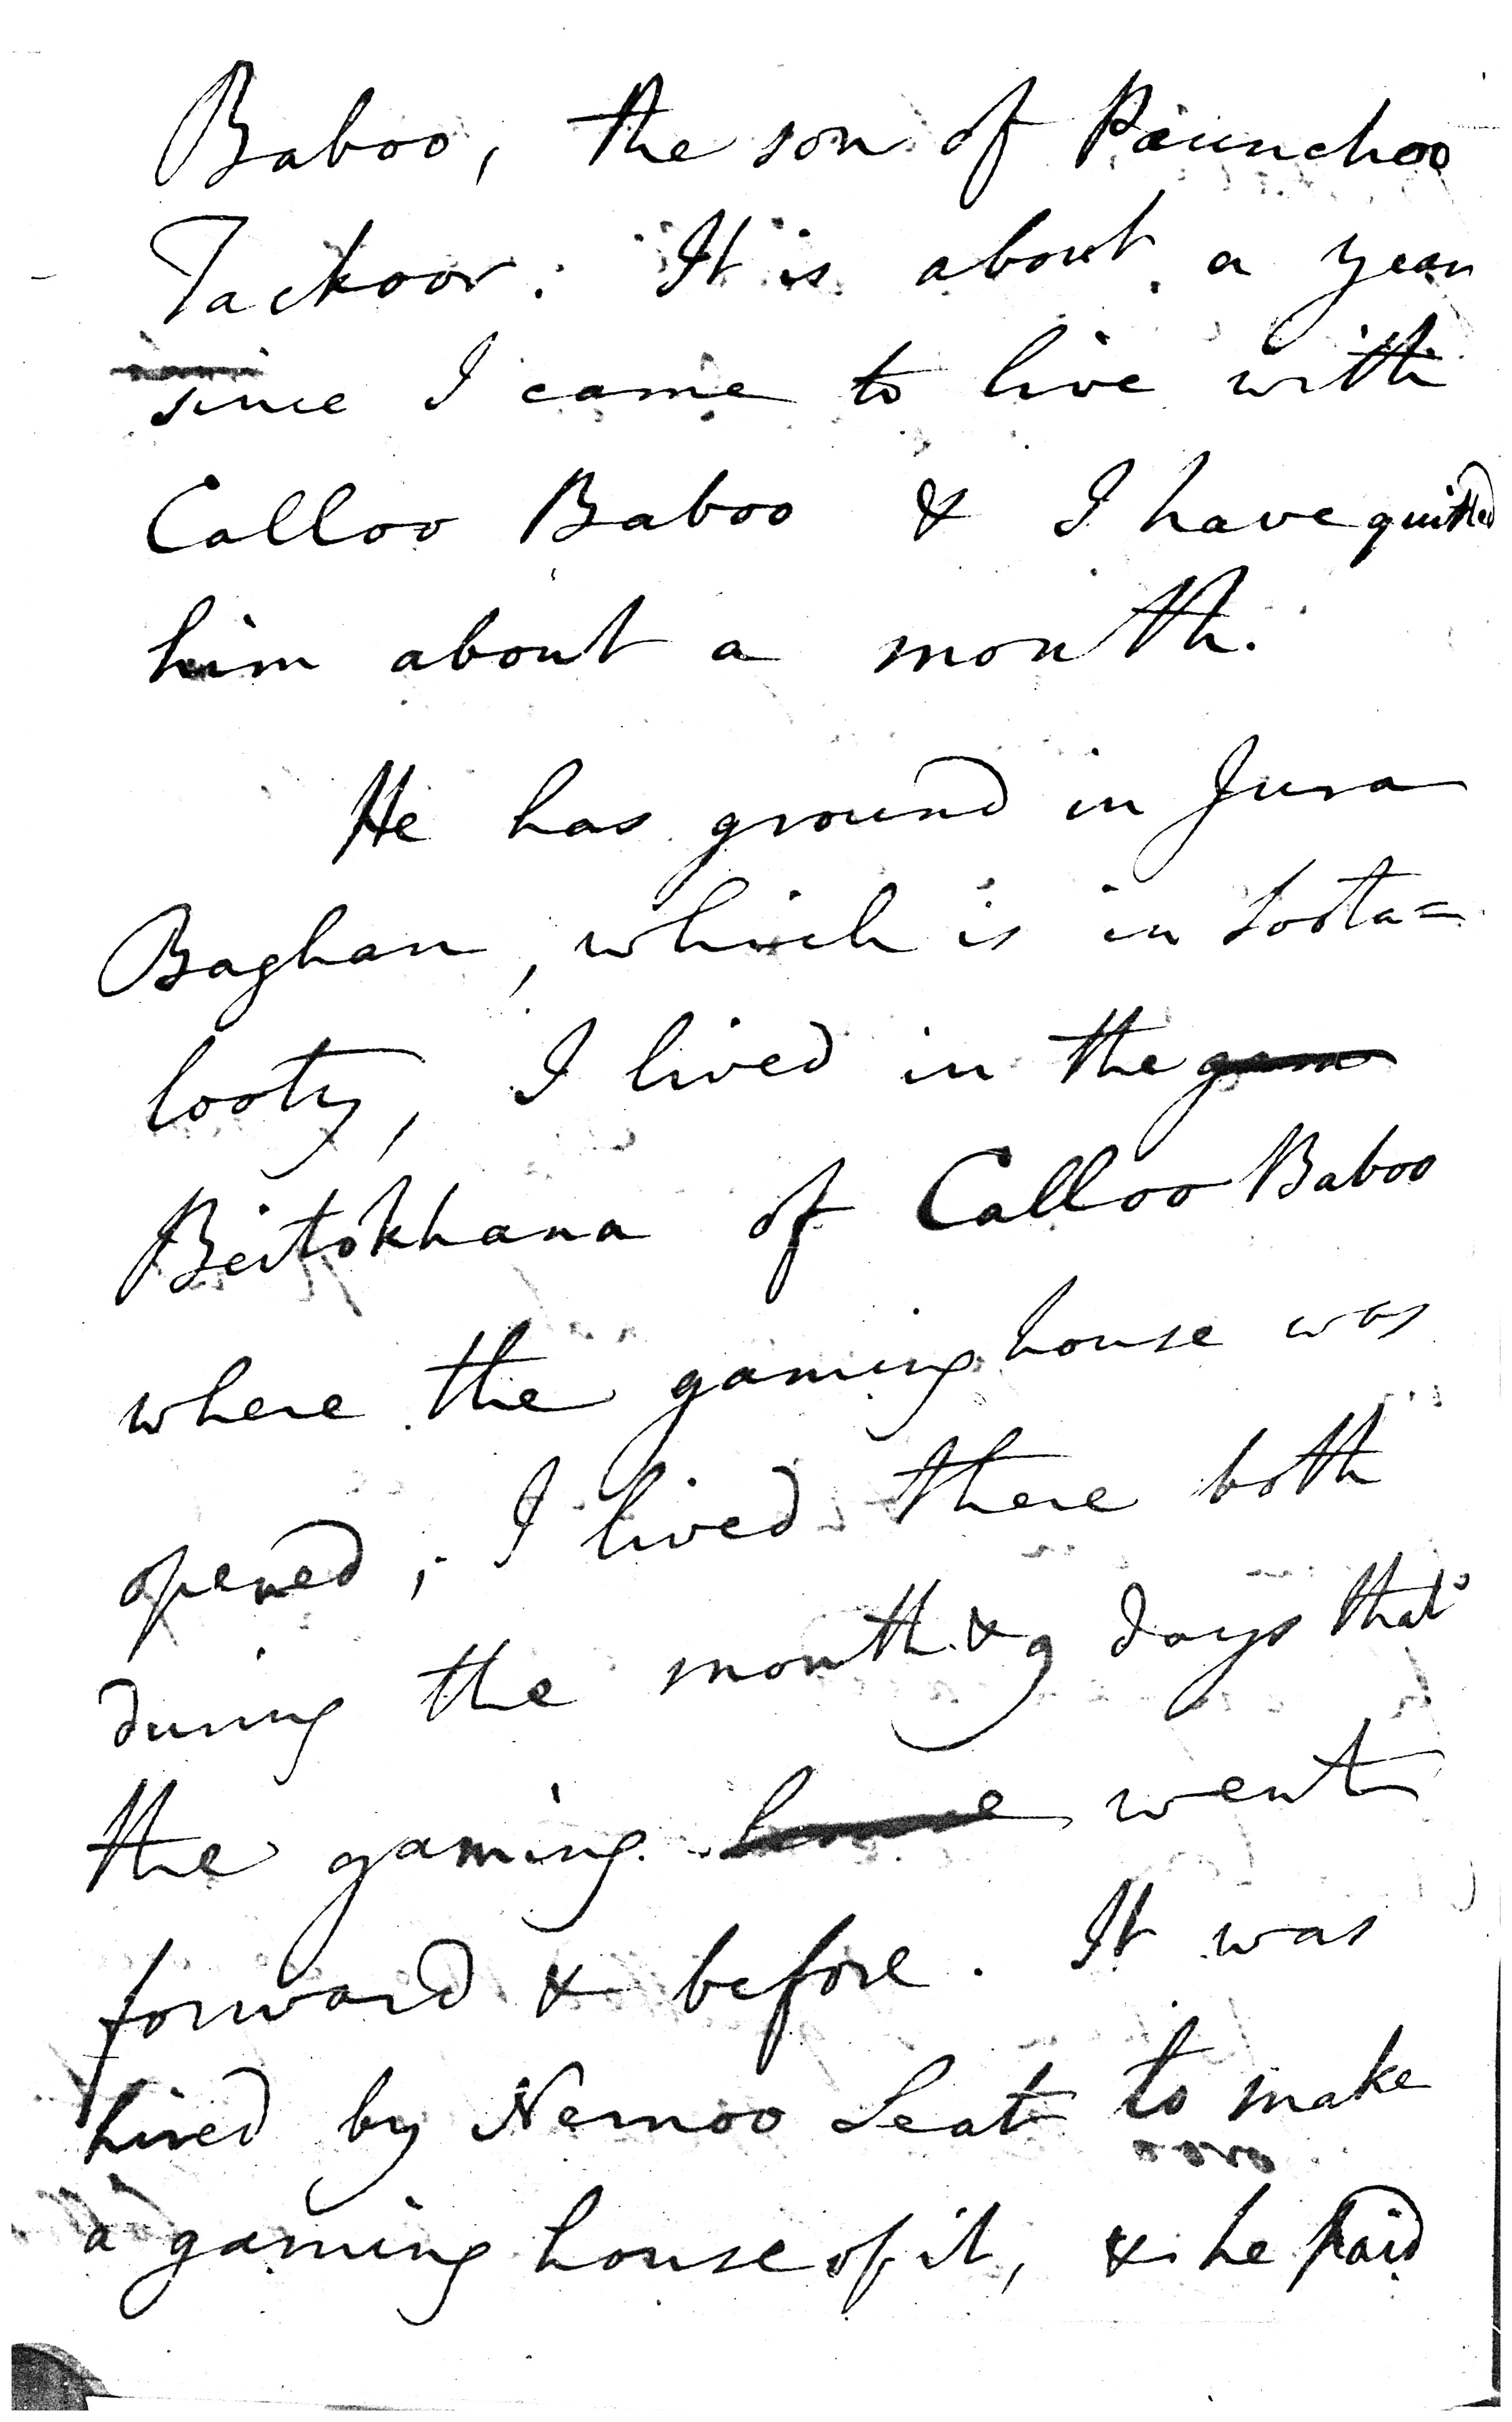 Baboo, the son of Paunchoo
Tackoor. It is about a year
since I came to live with
Calloo Baboo & I have quitted
him about a month.
He has ground in Jura
Baghan, which is in Soota=
looty, I lived in the gam
Beitokhana of Calloo Baboo
where the gaming house was
opened, I lived there both
during the month & 9 days that
the gaming house went
forward & before. It was
hired by Nemoo Seat to make
a gaming house of it, & he paid